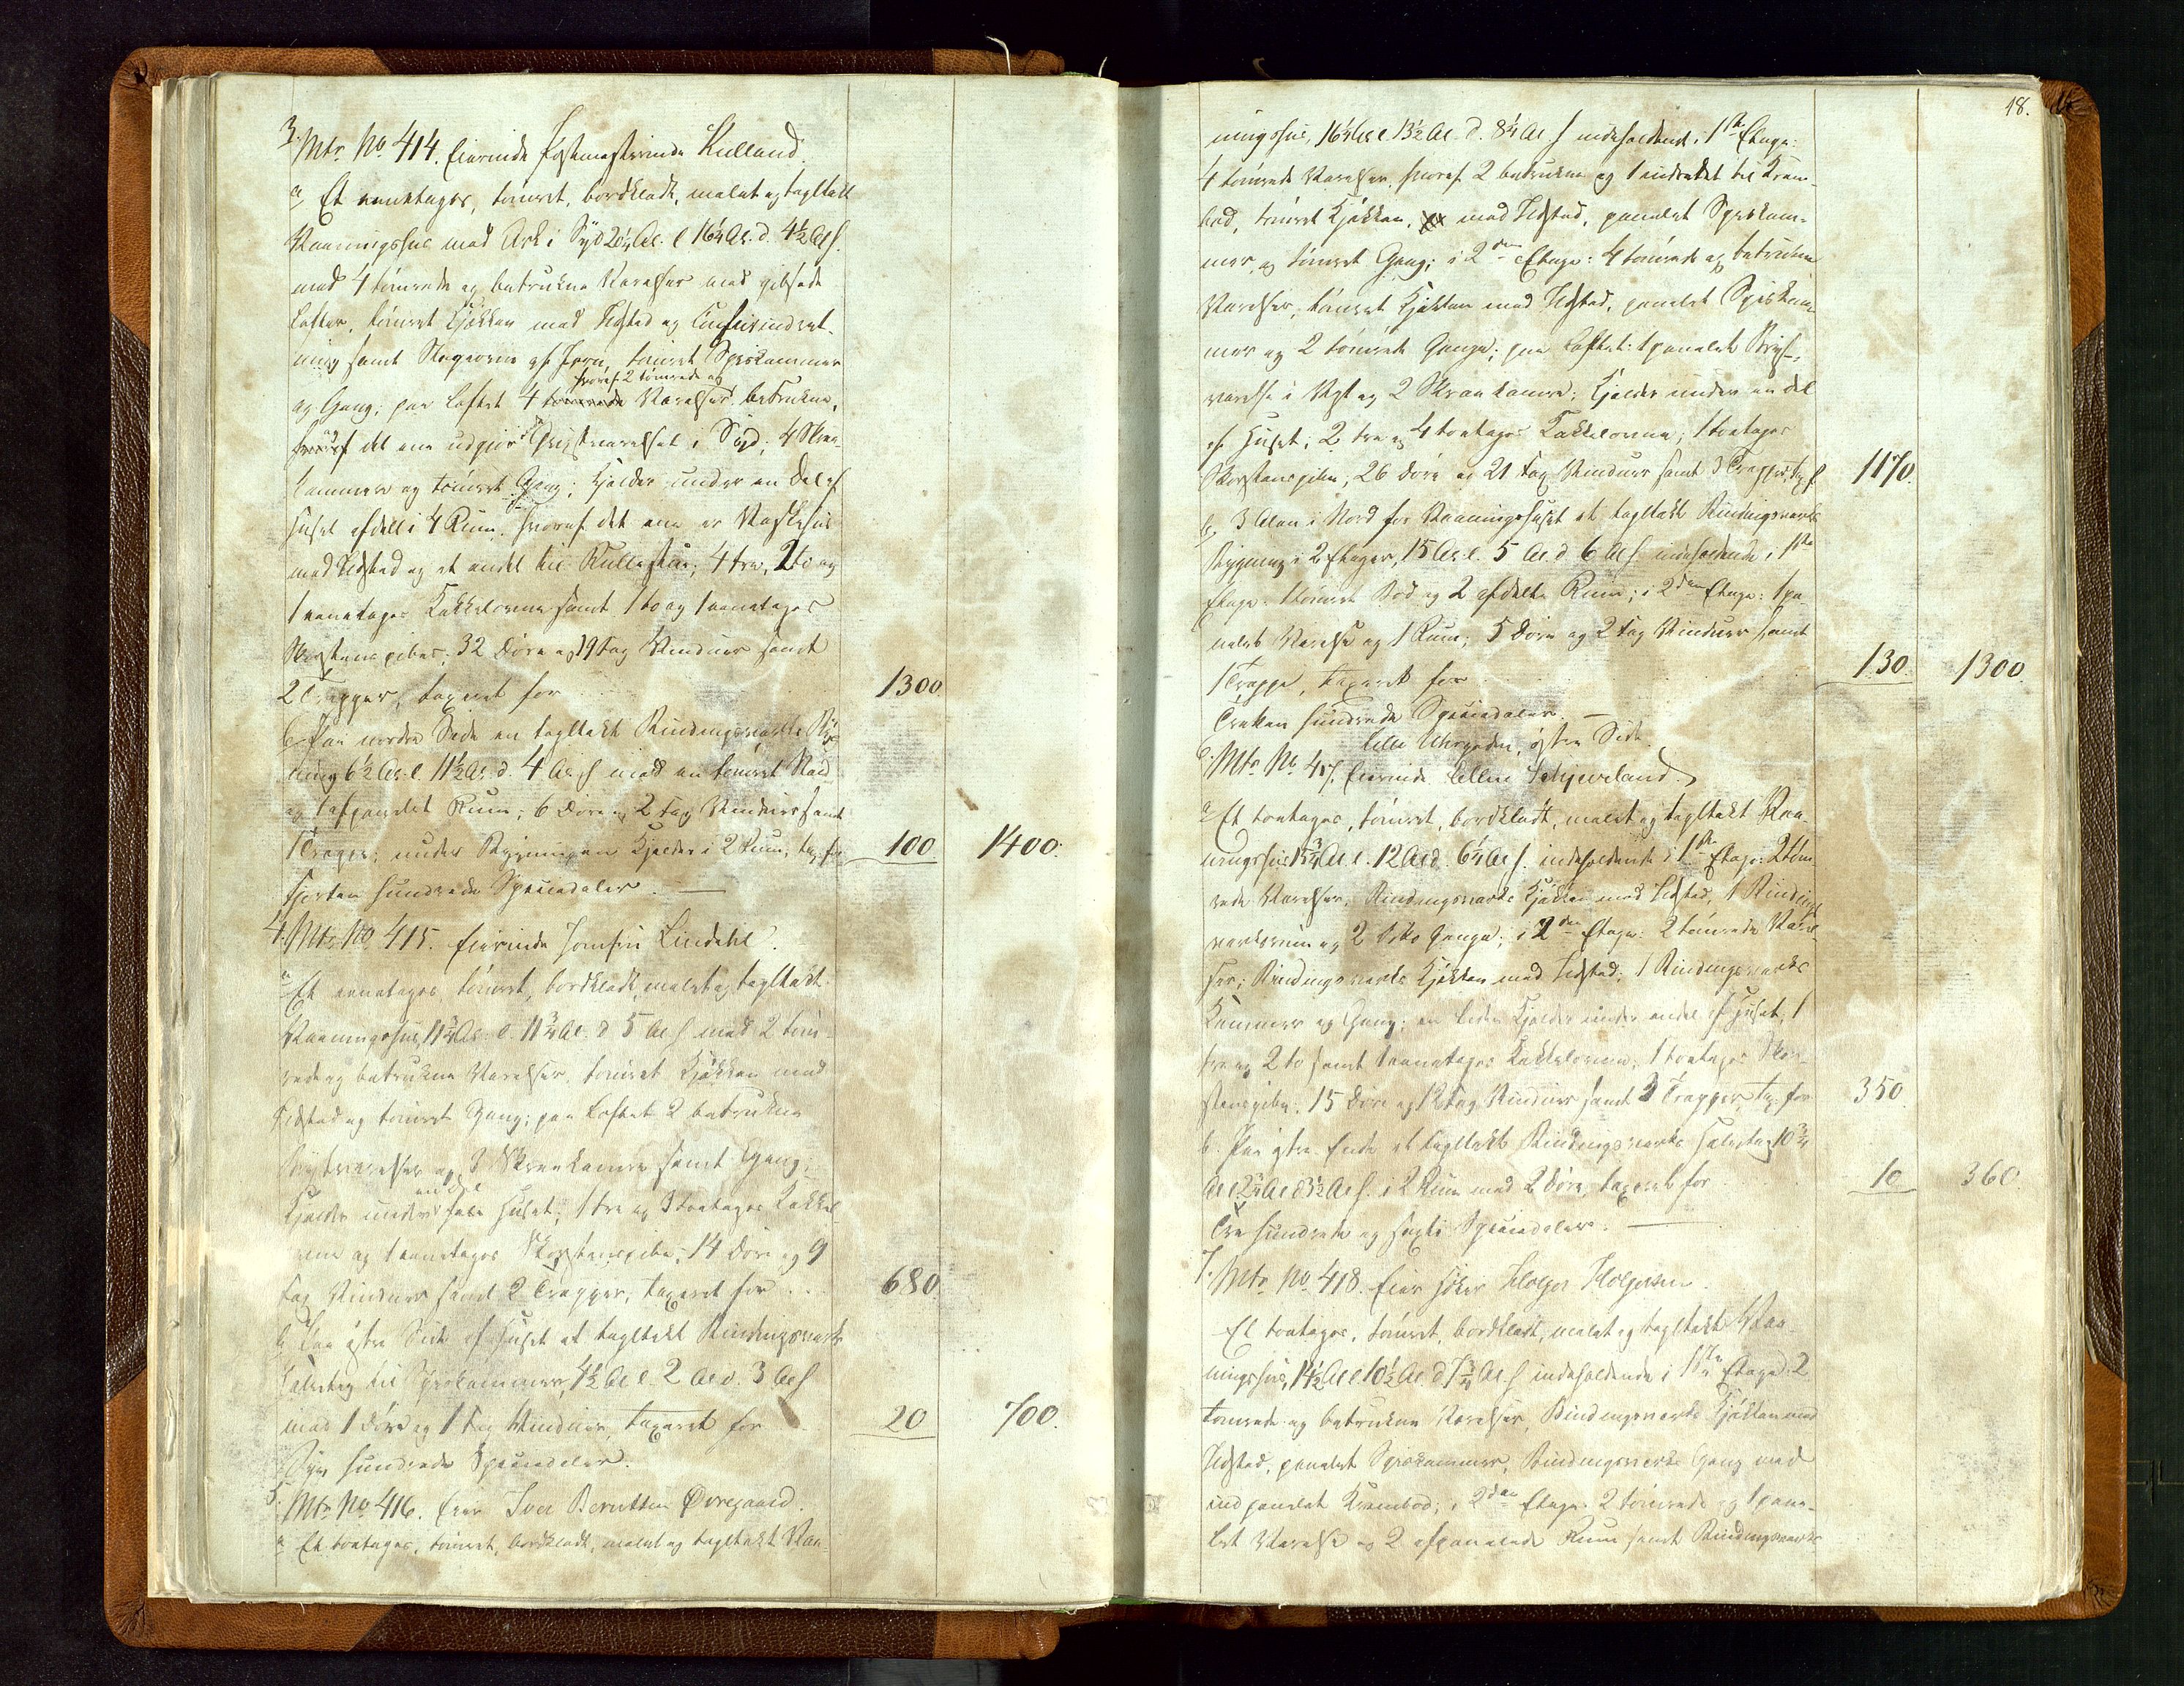 3. Mtr. No 414. Eierinde Postmesterinde Kielland.
a, Et eenetages, tømret, bordklædt, malet og tegltækt
Vaaningshus med Ark i Syd 20¼ Al. l. 16¼ Al. d. 4½ Al h.
med 4 tømrede og betrukne Værelser med gibsede
Lofter, tømret Kjøkken med Ildsted og Comfurindret-
ning samt Stegeovn af Jern, tømret Spiskammer
hvoraf 2 tømrede og
og Gang; paa Loftet 4 tømrede Værelser betrukne,
hvoraf det ene udgjør Qvistværelset i Syd; 4 Skraa-
kammere og tømret Gang; Kjelder under en Del af
Huset afdelt i 4 Rum, hvoraf det ene er Vaskehus
med Ildsted og et andet til Rullestue; 4 tre, 2 to og
1 eenetages Kakkelovne samt 1 to og 1 eenetages
Skorstenspiber; 32 Døre og 19 Fag Vinduer samt
2 Trapper, taxeret for 1300
b, Paa nordre Side en tegltækt Bindingsværks Byg-
ning 6½ Al. l. 11½ Al. d. 4 Al. h med en tømret Bod
og 1 afpanelet Rum; 6 Døre og 2 Fag Vinduer samt
1 Trappe; under Bygningen Kjelder i 2 Rum, tax. for 100 1400.
Fjorten hundrede Speciedaler. —
4. Mtr. No 415. Eierinde Jomfru Lindahl.
a, Et eenetages tømret, bordklædt, malet og tegltækt
Vaaningshus, 11¾ Al. l. 11¾ Al. d 5 Al h med 2 tøm-
rede og betrukne Værelser, tømret Kjøkken med
Ildsted og tømret Gang; paa Loftet 2 betrukne
Qvistværelser og 3 Skraakamre samt Gang;
en Del
Kjelder under hele Huset; 1 tre og 3 toetages Kakkel-
ovne og 1 eenetages Skorstenspibe; 14 Døre og 9
Fag Vinduer samt 2 Trapper, taxeret for .. 680.
b, Paa østre Side af Huset et tegltækt Bindingsværks
Halvtag til Spiskammer, 4½ Al l. 2 Al d. 3 Al h
med 1 Dør og 1 Fag Vinduer, taxeret for 20 700.
Syv hundrede Speciedaler.
5. Mtr. No 416. Eier Iver Berntsen Øvregaard.
a, Et toetages, tømret, bordklædt, malet og tegltækt Vaa-
18.
ningshus, 16¼ Al l 13½ Al. d. 8¼ Al h indeholdende i 1ste Etage:
4 tømrede Værelser, hvoraf 2 betrukne og 1 indredet til Kram-
bod, tømret Kjøkken, med Ildsted, panelet Spiskam-
mer, og tømret Gang; i 2den Etage: 4 tømrede og betrukne
Værelser, tømret Kjøkken med Ildsted, panelet Spiskam-
mer og 2 tømrede Gange; paa Loftet: 1 panelet Qvist-
værelse i Vest og 2 Skraakamre; Kjelder under en Del
af Huset; 2 tre og 4 toetages Kakkelovne; 1 toetages
Skorstenspibe; 26 Døre og 21 Fag Vinduer samt 3 Trapper, tax. f. 1170.
b, 3 Alen i Nord for Vaaningshuset et tegltækt Bindingsværks
Bygning i 2 Etager, 15 Al. l. 5 Al d 6 Al h. indeholdende i 1ste
Etage: 1 tømret Bod og 2 afdelte Rum; i 2den Etage: 1 pa-
nelet Værelse og 1 Rum; 5 Døre og 2 Fag Vinduer samt
1 Trappe, taxeret for 130. 1300.
Tretten hundrede Speciedaler. —
østre Side.
6. Mtr. No 417. Eierinde Schjeveland.
a, Et toetages, tømret, bordklædt, malet og tegltækt Vaa-
ningshus 15¾ Al l. 12 Al d. 6¼ Al h. indeholdende i 1ste Etage: 2 tøm-
rede Værelser, Bindingsværks Kjøkken med Ildsted, 1 Bindings-
værksrum og 2 Gange; i 2den Etage: 2 tømrede Værel-
ser; Bindingsværks Kjøkken med Ildsted; 1 Bindingsværks
Kammer og Gang; en liden Kjelder under endel af Huset, 1
tre og 2 to samt 1 eenetages Kakkelovne, 1 toetages Skor-
stenspibe; 15 Døre og 12 Fag Vinduer samt 3 Trapper, tax. for 350.
b. Paa østre Ende et tegltækt Bindingsværks Halvtag 10¾
Al l 2¾ Al d 3½ Al h. i 2 Rum med 2 Døre, taxeret for 10 360.
Tre hundrede og sexti Speciedaler. —
7. Mtr. No 418. Eier Holger Holgersen.
Et toetages, tømret, bordklædt, malet og tegltækt Vaa-
ningshus, 14½ Al l 10½ Al. d 7¾ Al h indeholdende i 1ste Etage: 2
tømrede og betrukne Værelser, Bindingsværks Kjøkken med
Ildsted, panelet Spiskammer, Bindingsværks Gang med
indpanelet Krambod; i 2den Etage 2 tømrede og 1 pane-
let Værelse og 2 afpanelede Rum samt Bindingsværks